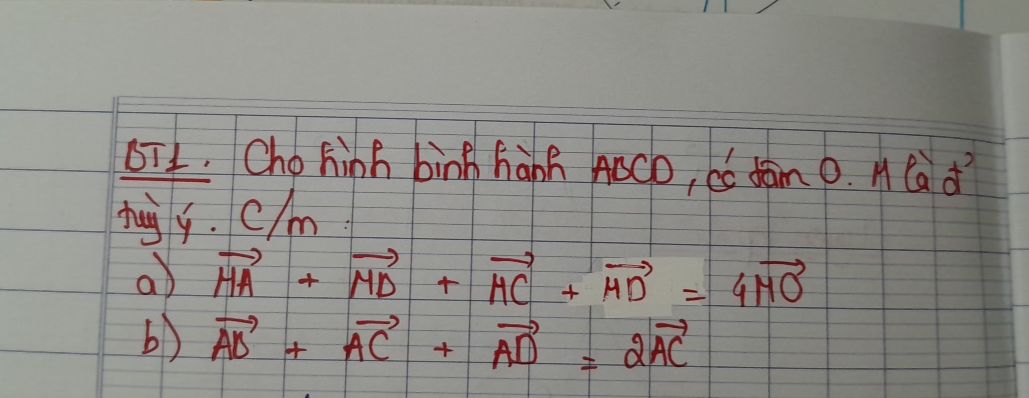 BT1. Cho hình bình hành ABCD, có tâm O. M là đ²
tuỳ ý. C/m :
a) \overrightarrow{MA} + \overrightarrow{MB} + \overrightarrow{MC} + \overrightarrow{MD} = 4\overrightarrow{MO}
b) \overrightarrow{AB} + \overrightarrow{AC} + \overrightarrow{AD} = 2\overrightarrow{AC}